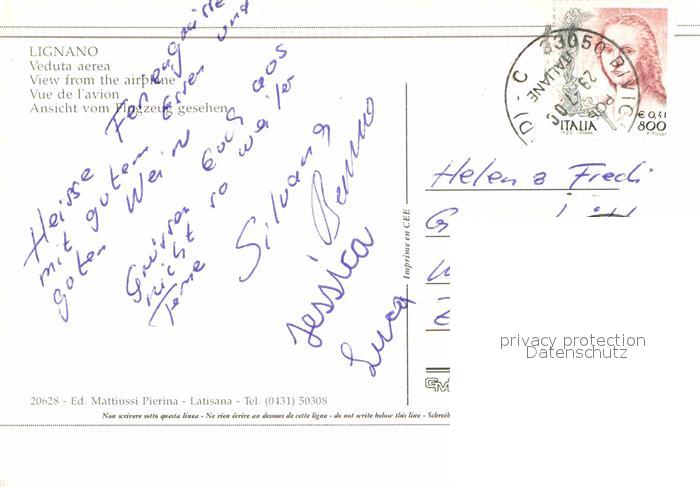 LIGNANO
Veduta aerea
View from the airplane
Vue de l'avion
Ansicht vom Flugzeug gesehen
Heisse Feriengrüsse
mit gutem Essen und
guten Wein
Grüssen Euch aus
nicht so weiter
Ferne
Silvana
Benno
Jessica
Luca
Imprimé en CEE
33050
ITALIANE
€ 0,41
800
ITALIA
Helen & Fredi
G
privacy protection
Datenschutz
GM
20628 - Ed. Mattiussi Pierina - Latisana - Tel. (0431) 50308
Non scrivere sotto questa linea - Ne rien écrire au dessous de cette ligne - do not write below this line - Schreib